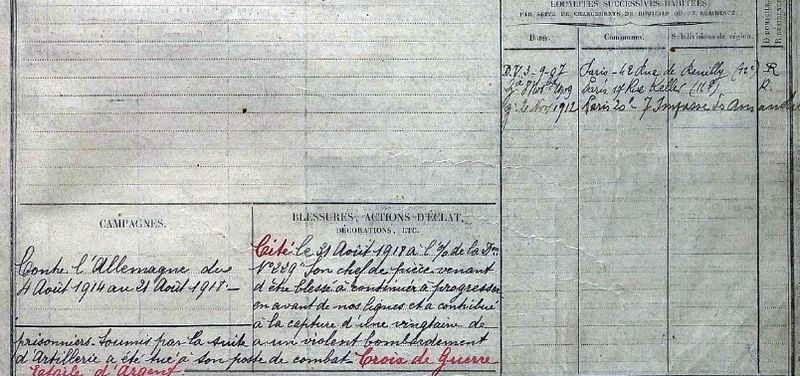 LOCALITÉS SUCCESSIVES HABITÉES
PAR SUITE DE CHANGEMENTS DE DOMICILE OU DE RÉSIDENCE.
Dates. Communes. Subdivisions de région.
D.V. 3-9-07 Paris - 42 Rue de Reuilly (12e) R
8 1909 Paris 17 Rue Keller (11e) R.
1912 Paris 20e 7 Impasse des Amandie
CAMPAGNES.
Contre l'Allemagne du
4 Août 1914 au 21 Août 1918 -
BLESSURES, ACTIONS D'ÉCLAT,
DÉCORATIONS, ETC.
Cité le 31 Août 1918 à l'O/ de la Don
N° 229 Son chef de pièce venant
d'être blessé à continuer à progresser
en avant de nos lignes et a contribué
à la capture d'une vingtaine de
prisonniers - Soumis par la suite a un violent bombardement
d'Artillerie a été tué à son poste de combat. Croix de Guerre
Etoile d'Argent